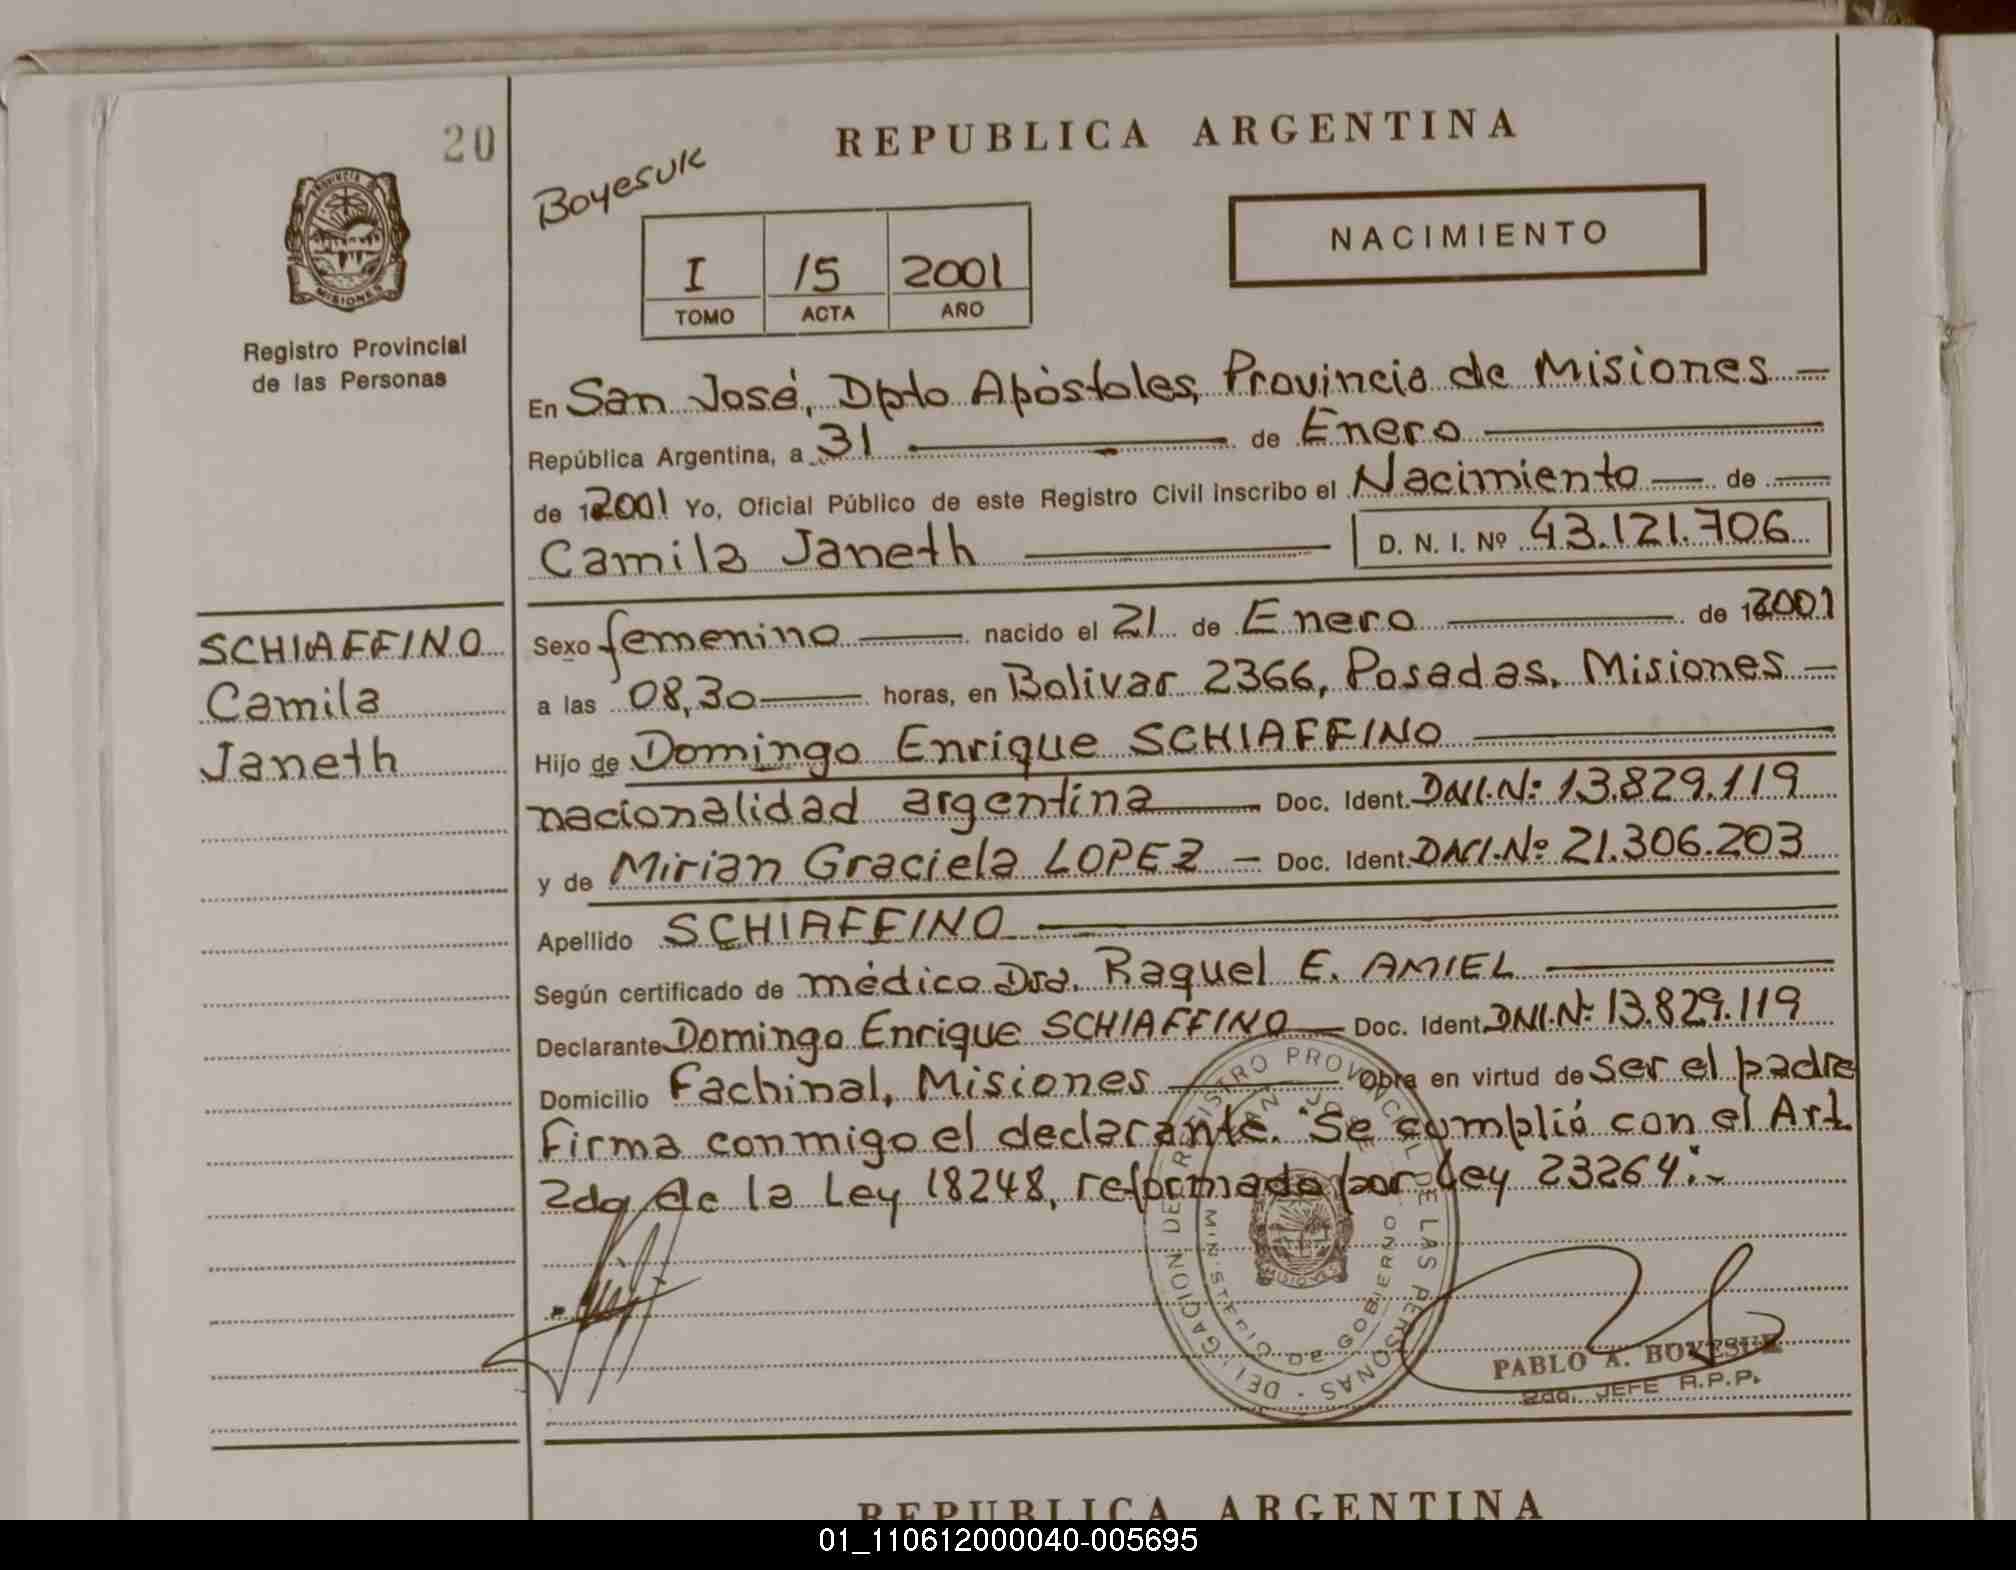 20
REPUBLICA ARGENTINA
Boyesuk
NACIMIENTO
I 15 2001
TOMO ACTA AÑO
PROVINCIA DE
MISIONES
Registro Provincial
de las Personas
En San José, Dpto Apóstoles, Provincia de Misiones —
República Argentina, a 31 — de Enero —
de 12001 Yo, Oficial Público de este Registro Civil inscribo el Nacimiento — de —
Camila Janeth — D. N. I. Nº 43.121.706
SCHIAFFINO
Camila
Janeth
Sexo femenino — nacido el 21 de Enero — de 12001
a las 08,30 — horas, en Bolivar 2366, Posadas, Misiones —
Hijo de Domingo Enrique SCHIAFFINO —
nacionalidad argentina — Doc. Ident. DNI.Nº 13.829.119
y de Mirian Graciela LOPEZ — Doc. Ident. DNI.Nº 21.306.203
Apellido SCHIAFFINO —
Según certificado de médico Dra. Raquel E. AMIEL —
Declarante Domingo Enrique SCHIAFFINO — Doc. Ident. DNI.Nº 13.829.119
Domicilio Fachinal, Misiones — Obra en virtud de ser el padre
Firma conmigo el declarante. "Se cumplió con el Art
2do de la Ley 18248, reformado por Ley 23264".-
DELEGACION DE REGISTRO PROVINCIAL DE LAS PERSONAS
SAN JOSE
MINISTERIO DE GOBIERNO
MISIONES
PABLO A. BOYESUK
2do. JEFE R.P.P.
REPUBLICA ARGENTINA
01_110612000040-005695